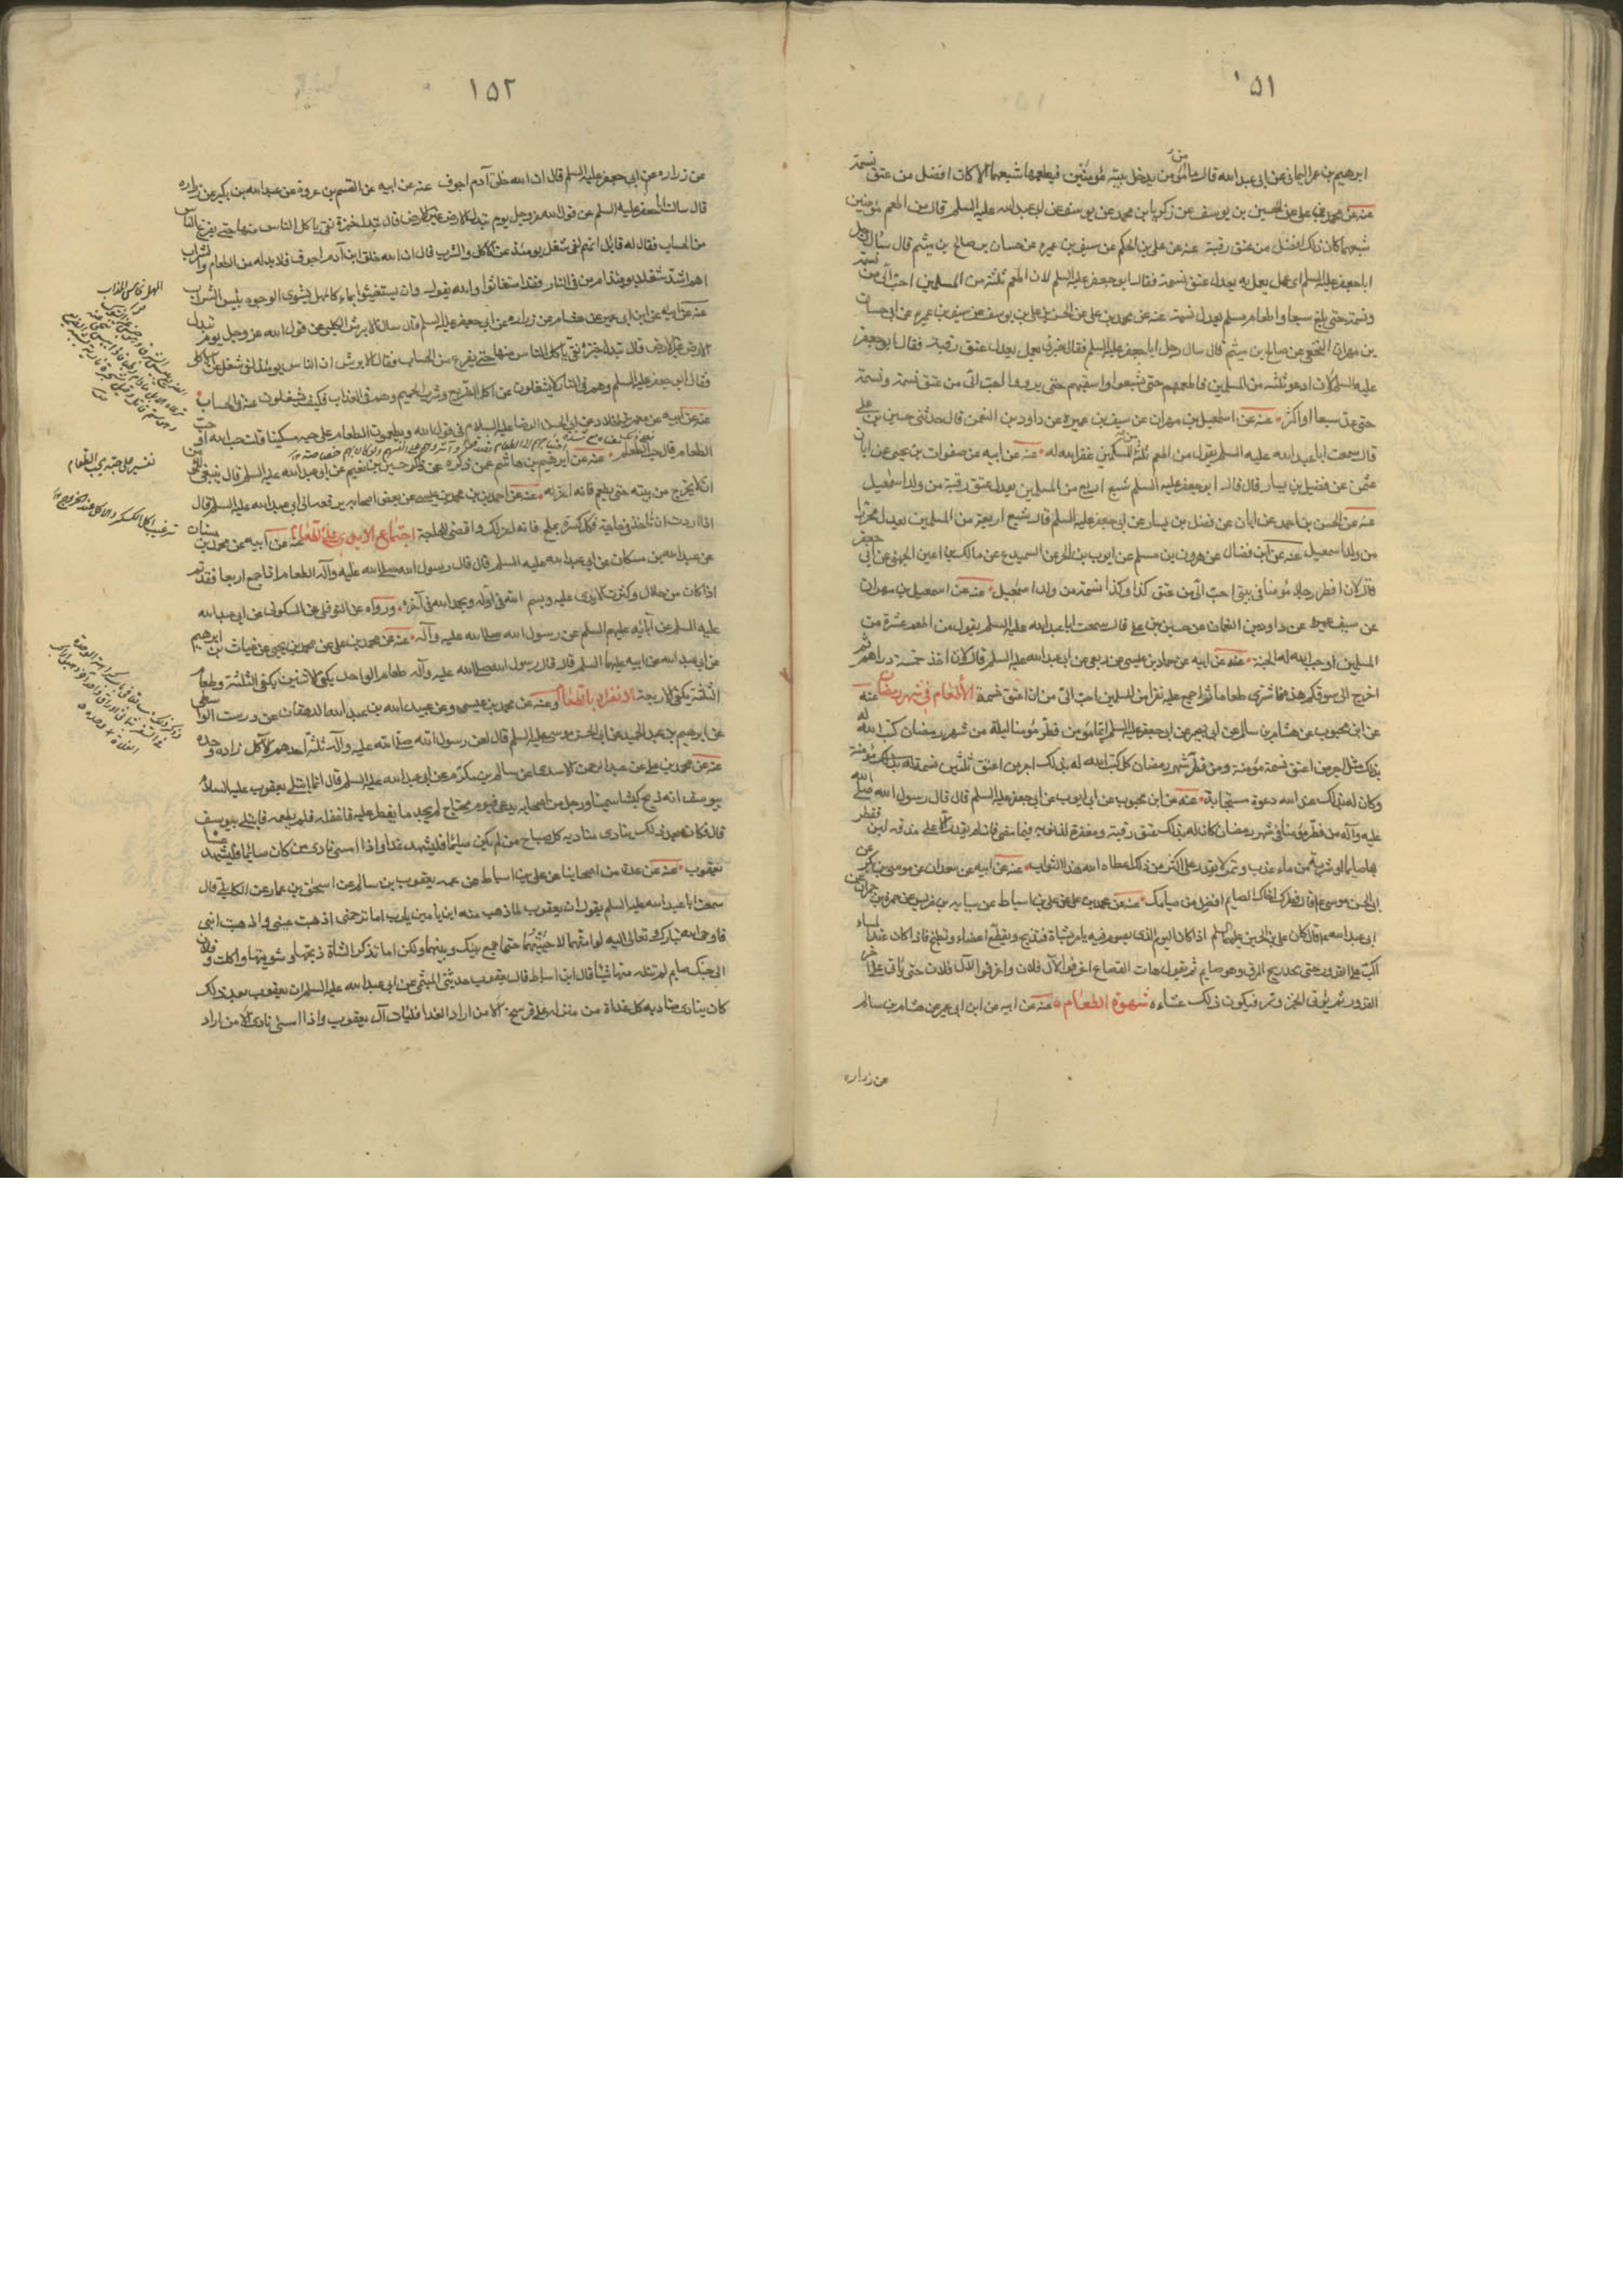 ١٥١
ابرهيم بن عمر اليماني عن ابي عبد الله قال ما من مؤمن يدخل بيته مؤمنين فيطعمهما شبعهما الا كان افضل من عتق نسمة
عنه عن محمد بن علي عن الحسين بن يوسف عن زكريا بن محمد عن يوسف عن ابي عبد الله عليه السلم قال من اطعم مؤمنين
شبعهما كان ذلك افضل من عتق رقبة عنه عن علي بن الحكم عن سيف بن عميره عن حسان بن صالح بن ميثم قال سأل رجل
ابا جعفر عليه السلم اي عمل يعمل به يعدل عتق نسمة فقال ابو جعفر عليه السلم لان اطعم ثلثة من المسلمين احب الي من نسمة
ونسمة حتى بلغ سبعا واطعام مسلم يعدل نسمة عنه عن محمد بن علي عن الحسن بن علي بن يوسف عن سيف بن عميره عن ابي حسان
بن مهران النخعي عن صالح بن ميثم قال سال رجل ابا جعفر عليه السلم فقال خبرني بعمل يعدل عتق رقبة فقال ابو جعفر
عليه السلم لان ادعو ثلثه من المسلمين فاطعمهم حتى يشبعوا واسقيهم حتى يرووا احب الي من عتق نسمة ونسمة
حتى عد سبعا او اكثر عنه عن اسمعيل بن مهران عن سيف بن عميره عن داود بن النعمن قال حدثني حسين بن علي
قال سمعت ابا عبد الله عليه السلم يقول من اطعم ثلثة من المسلمين غفر الله له عنه عن ابيه عن صفوان بن يحيى عن ابان
عثمن عن فضيل بن يسار قال قال ابو جعفر عليه السلم شبع اربع من المسلمين يعدل عتق رقبة من ولد اسمعيل
عنه عن الحسن بن احمد عن ابان عن فضل بن يسار عن ابي جعفر عليه السلم قال شبع اربعة من المسلمين يعدل محررا
من ولد اسمعيل عنه عن ابن فضال عن هرون بن مسلم عن ايوب بن الحر عن السميدع عن مالك بن اعين الجهني عن ابي جعفر
قال لان افطر رجلا مؤمنا في بيتي احب الي من عتق كذا وكذا نسمة من ولد اسمعيل عنه عن اسمعيل بن مهران
عن سيف عن داود بن النعمان عن حسين بن علي قال سمعت ابا عبد الله عليه السلم يقول من اطعم عشرة من
المسلمين اوجب الله له الجنة عنه عن ابيه عن حماد بن عيسى عن ربعي عن ابي عبد الله عليه السلم قال لان اخذ خمسة دراهم ثم
اخرج الى سوقكم هذه فاشتري طعاما ثم اجمع عليه نفرا من المسلمين احب الي من ان اعتق نسمة الاطعام في شهر رمضان عنه
عن ابن محبوب عن هشام بن سالم عن ابي جعفر عليه السلم ايما مؤمن فطر مؤمنا ليلة من شهر رمضان كتب الله له
بذلك مثل اجر من اعتق نسمة مؤمنة ومن فطر شهر رمضان كله كتب الله له بذلك اجر من اعتق ثلثين نسمة مؤمنة
وكان له بذلك عند الله دعوة مستجابة عنه عن ابن محبوب عن ابي ايوب عن ابي جعفر عليه السلم قال قال رسول الله صلى الله
عليه وآله من فطر مؤمنا في شهر رمضان كان له بذلك عتق رقبة ومغفرة لذنوبه فيما مضى فان لم يقدر الا على مذقه لبن ففطر
بها صائما او شربة من ماء عذب وتمر لا يقدر على اكثر من ذلك اعطاه الله هذا الثواب عنه عن ابيه عن سعدان عن موسى بن بكر عن
ابي الحسن موسى ع قال فطرك اخاك الصايم افضل من صيامك عنه عن محمد بن علي عن علي بن اسباط عن سيابه بن ضريس عن حمزه بن حمران عن
ابي عبد الله ع قال كان علي بن الحسين عليه السلم اذا كان اليوم الذي يصوم فيه يامر بشاة فتذبح وتقطع اعضاء وتطبخ فاذا كان عند المساء
اكب على القدور حتى يجد ريح المرق وهو صايم ثم يقول هات القصاع اغرفوا لآل فلان واغرفوا لآل فلان حتى ياتي على آخر
القدور ثم يؤتى بخبز وتمر فيكون ذلك عشاءه شهوة الطعام عنه عن ابيه عن ابن ابي عمير عن هشام بن سالم
عن زراره
١٥٢
عن زراره عن ابي جعفر عليه السلم قال ان الله خلق آدم اجوف عنه عن ابيه عن القسم بن عروة عن عبد الله بن بكير عن زراره
قال سالت ابا جعفر عليه السلم عن قول الله عز وجل يوم تبدل الارض غير الارض قال تبدل خبزة نقي ياكل الناس منها حتى يفرغ الناس
من الحساب فقال له قايل انهم لفي شغل يومئذ عن الاكل والشرب قال ان الله خلق ابن آدم اجوف فلا بد له من الطعام والشراب
اهم اشد شغلا يومئذ ام من في النار فقد استغاثوا والله يقول وان يستغيثوا يغاثوا بماء كالمهل يشوي الوجوه بئس الشراب
عنه عن ابيه عن ابن ابي عمير عن هشام عن زراره عن ابي جعفر عليه السلم قال سأل الابرش الكلبي عن قول الله عز وجل يوم تبدل
الارض غير الارض قال تبدل خبزة نقي ياكل الناس منها حتى يفرغ من الحساب فقال الابرش ان الناس يومئذ لفي شغل عن الاكل
فقال ابو جعفر عليه السلم وهم في النار لا يشغلون عن اكل الضريع وشرب الحميم وهم في العذاب فكيف يشغلون عنه في الحساب
عنه عن ابيه عن معمر بن خلاد عن ابي الحسن الرضا عليه السلام في قول الله ويطعمون الطعام على حبه مسكينا قلت حب الله او حب
الطعام قال حب الطعام عنه عن ابرهيم بن هاشم عمن ذكره عن حسين بن نعيم عن ابي عبد الله عليه السلم قال ينبغي للمؤمن
ان لا يخرج من بيته حتى يطعم فانه اعز له عنه عن احمد بن محمد بن عيسى عن بعض اصحابه رفعه الى ابي عبد الله عليه السلم قال
اذا اردت ان تاخذ في حاجة فكل كسرة بملح فانه اعز لك واقضى للحاجة اجتماع الايدي على الطعام عنه عن ابيه عن محمد بن سنان
عن عبد الله بن مسكان عن ابي عبد الله عليه السلم قال قال رسول الله صلى الله عليه وآله الطعام اذا جمع اربعا فقد تم
اذا كان من حلال وكثرت الايدي عليه وسم الله في اوله وحمد الله في آخره ورواه عن النوفلي عن السكوني عن ابي عبد الله
عليه السلم عن آبائه عليهم السلم عن رسول الله صلى الله عليه وآله عنه عن محمد بن علي عن محمد بن يحيى عن غياث بن ابرهيم
عن ابي عبد الله عن ابيه عليهما السلم قال قال رسول الله صلى الله عليه وآله طعام الواحد يكفي الاثنين يكفي الثلثة وطعام
الثلثة يكفي الاربعة الانفراد بالطعام وعنه عن محمد بن عيسى وعن عبيد الله بن عبد الله الدهقان عن درست الواسطي
عن ابرهيم بن عبد الحميد عن ابي الحسن موسى عليه السلم قال لعن رسول الله صلى الله عليه وآله ثلثة احدهم الآكل زاده وحده
عنه عن محمد بن علي عن عبد الرحمن الاسدي عن سالم بن مكرم عن ابي عبد الله عليه السلم قال انما ابتلي يعقوب عليه السلام
بيوسف انه ذبح كبشا سمينا ورجل من اصحابه محتاج لم يجد ما يفطر عليه فاغفله فلم يطعمه فابتلي بيوسف
قال فكان بعد ذلك ينادي مناديه كل صباح من لم يكن صائما فليشهد غدا واذا امسى نادى من كان صائما فليشهد عشا
يعقوب عنه عن عدة من اصحابنا عن علي بن اسباط عن عمه يعقوب بن سالم عن اسحق بن عمار عن الكاهلي قال
سمعت ابا عبد الله عليه السلم يقول ان يعقوب لما ذهب منه ابن يامين يارب اما ترحمني اذهبت عيني واذهبت ابني
فاوحى الله تبارك وتعالى اليه لو امتهما لاحييتهما حتى اجمع بينك وبينهما ولكن اما تذكر الشاة ذبحتها وشويتها واكلت وفلان
الى جنبك صايم لم تنله منها شيئا قال ابن اسباط قال يعقوب حدثني الميثمي عن ابي عبد الله عليه السلم ان يعقوب بعد ذلك
كان ينادي مناديه كل غداة من منزله على فرسخ الا من اراد الغدا فليات آل يعقوب واذا امسى نادى الا من اراد
تفسير على حبه بحب الطعام